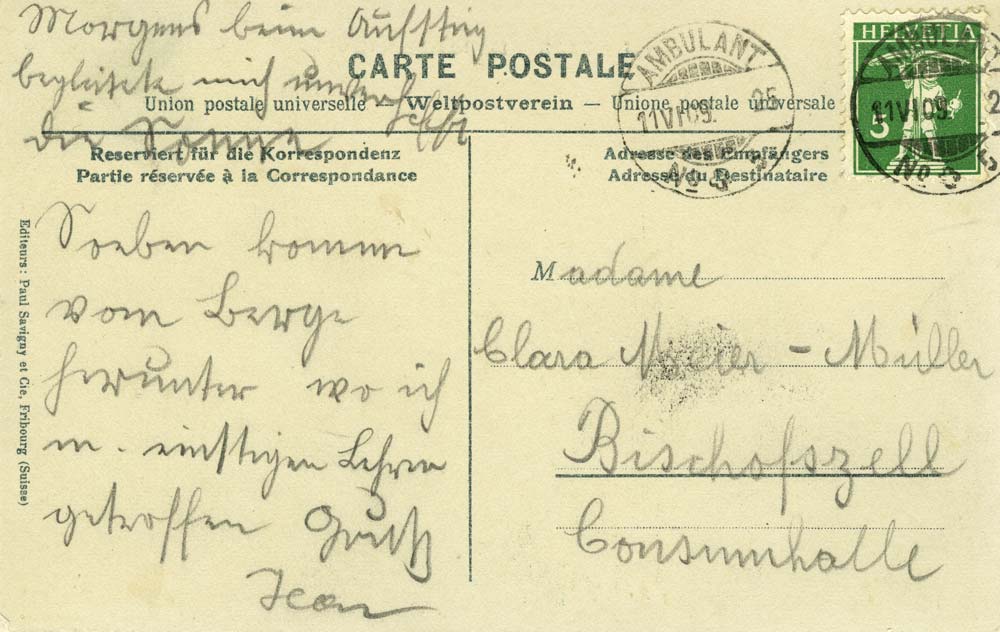 Morgens beim Aufstieg
begleitete mich
die Sonne
CARTE POSTALE
Union postale universelle – Weltpostverein – Unione postale universale
Reserviert für die Korrespondenz
Partie réservée à la Correspondance
Soeben komme
vom Berge
herunter wo ich
m. einstigen Lehrer
getroffen Gruss
Jean
Editeurs: Paul Savigny et Cie, Fribourg (Suisse)
Adresse des Empfängers
Adresse du Destinataire
Madame
Clara Meier - Müller
Bischofszell
Consumhalle
AMBULANT
11 VI 09. 25
No 3
HELVETIA
5
AMBULANT
11 VI 09. 2
No 3